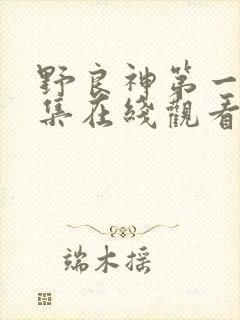 野良神第一
集在綫觀看
端木摇